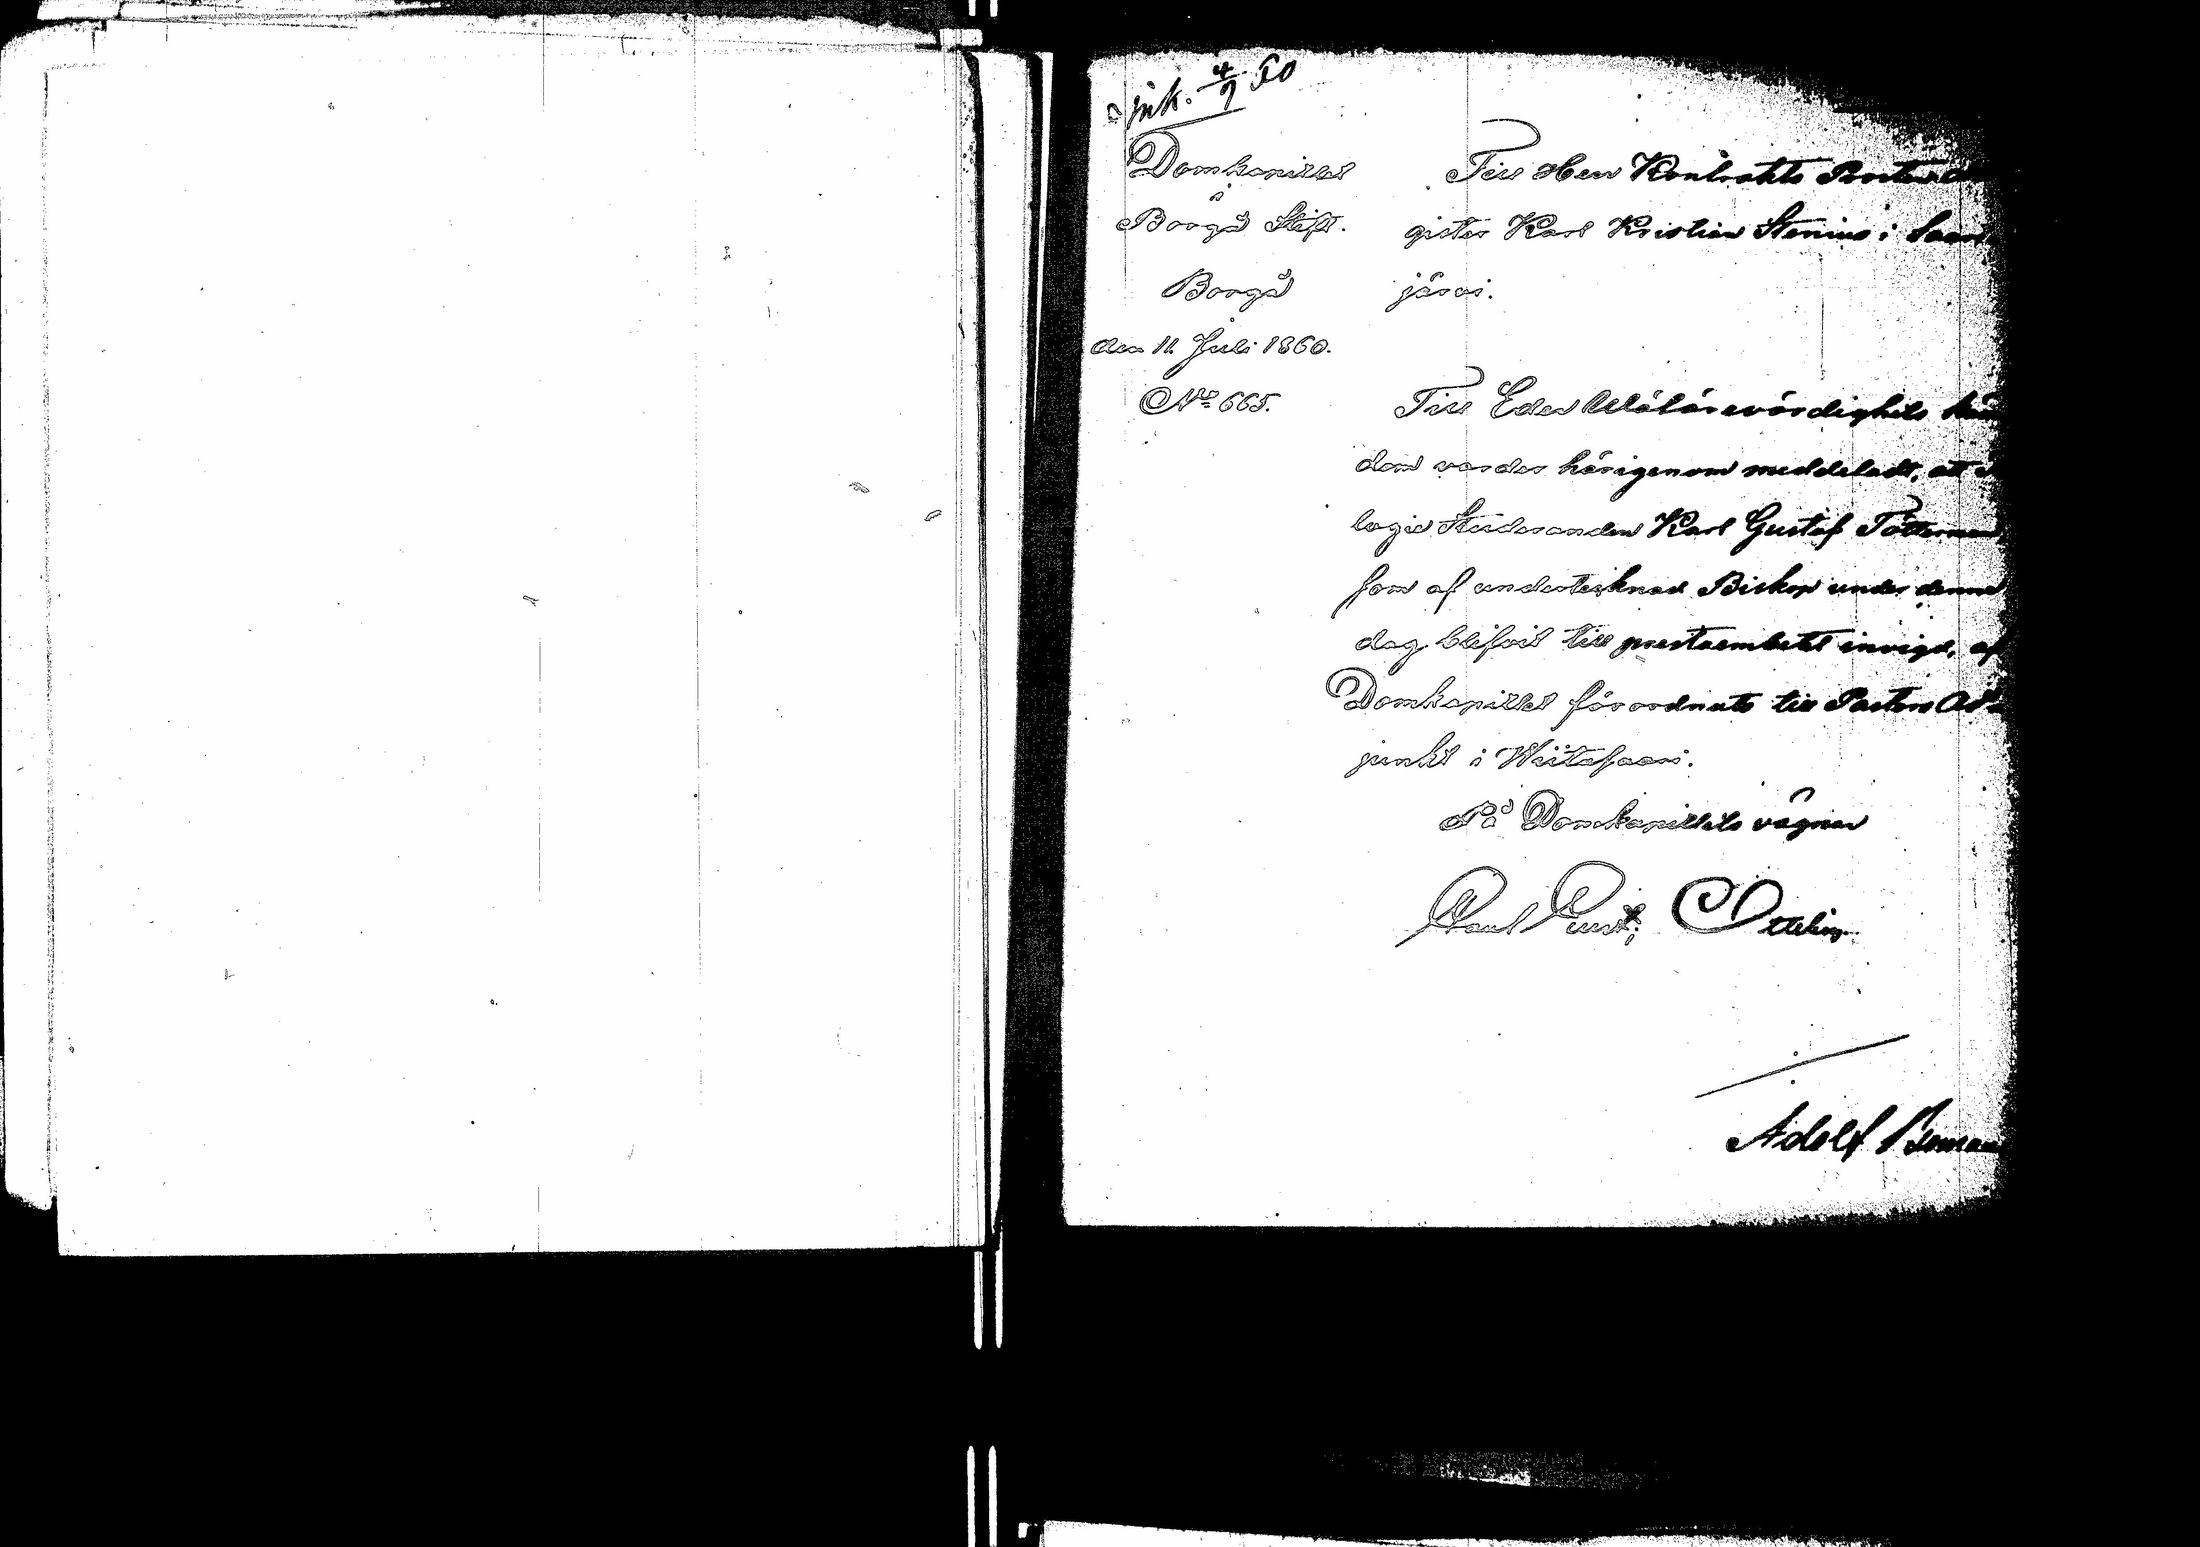 ink. 4/9 60
Domkapitlet
i
Borgå Stift.
Borgå
den 11 Juli 1860.
No 665.
Till Herr Kontrakts Prosten
gister Karl Kristian Stenius i Saari
järvi.
Till Eder Wälärevördighets känne
dom varder härigenom meddeladt, att
logie Studeranden Karl Gustaf Tötterman,
som af undertecknad Biskop under denna
dag blifvit till prestaembetet invigd, af
Domkapitlet förordnats till Pastors Ad
junkt i Wiitasaari.
På Domkapitlets vägnar
C Ottelin
Adolf